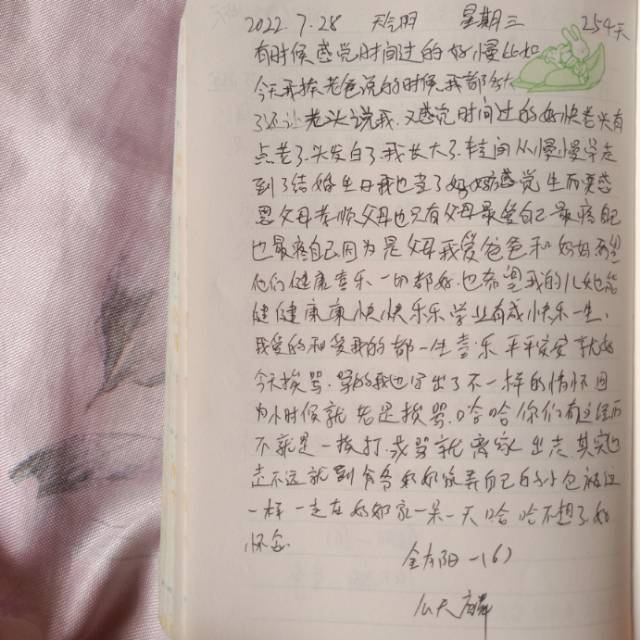 2022.7.28 天气阴 星期三 254天
有时候感觉时间过的好慢比如
今天我挨老爸说的时候我都
了还让老头说我.又感觉时间过的好快老头有
点老了.头发白了我长大了.转间从慢慢学走
到了结婚生日我也当了妈妈感觉生而要感
恩父母孝顺父母也只有父母最爱自己最疼自己
也最疼自己因为是父母我爱爸爸和妈妈希望
他们健康喜乐一切都好.也希望我的儿他能
健健康康快快乐乐学业有成快乐一生.
我爱的和爱我的都一生喜乐平平安安就好
今天挨骂.骂的我也写出了不一样的情怀因
为小时候就老是挨骂.哈哈你们有这经而
不就是一挨打.或骂就离家出走其实也
走不远就到爷爷奶奶家弄自己的小包被这
一样一走在奶奶家一呆一天哈哈不想了好
怀念.
金 阳一(6)
天